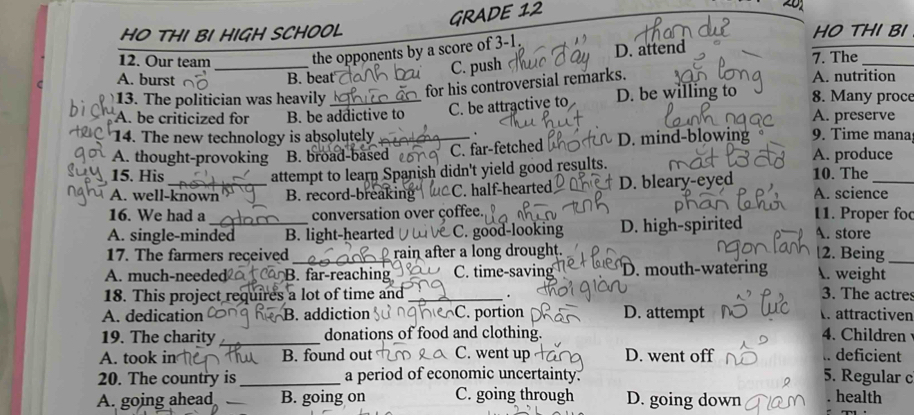 HO THI BI HIGH SCHOOL GRADE 12
12. Our team ________ the opponents by a score of 3-1.
A. burst nổ B. beat đánh bại C. push thúc đẩy D. attend tham dự
13. The politician was heavily ________ for his controversial remarks.
A. be criticized for B. be addictive to C. be attractive to thu hút D. be willing to sẵn lòng
14. The new technology is absolutely ________.
A. thought-provoking B. broad-based C. far-fetched D. mind-blowing
15. His ________ attempt to learn Spanish didn't yield good results.
A. well-known B. record-breaking C. half-hearted D. bleary-eyed mắt lờ đờ
16. We had a ________ conversation over coffee.
A. single-minded B. light-hearted C. good-looking D. high-spirited
17. The farmers received ________ rain after a long drought.
A. much-needed B. far-reaching C. time-saving D. mouth-watering
18. This project requires a lot of time and ________. thời gian
A. dedication B. addiction C. portion phần D. attempt nỗ lực
19. The charity ________ donations of food and clothing.
A. took in B. found out tìm ra C. went up tăng D. went off nổ
20. The country is ________ a period of economic uncertainty.
A. going ahead B. going on C. going through D. going down giảm
HO THI BI
7. The
A. nutrition
8. Many proce
A. preserve
9. Time mana
A. produce
10. The
A. science
11. Proper foo
A. store
12. Being
A. weight
3. The actres
A. attractiven
4. Children
. deficient
5. Regular c
. health